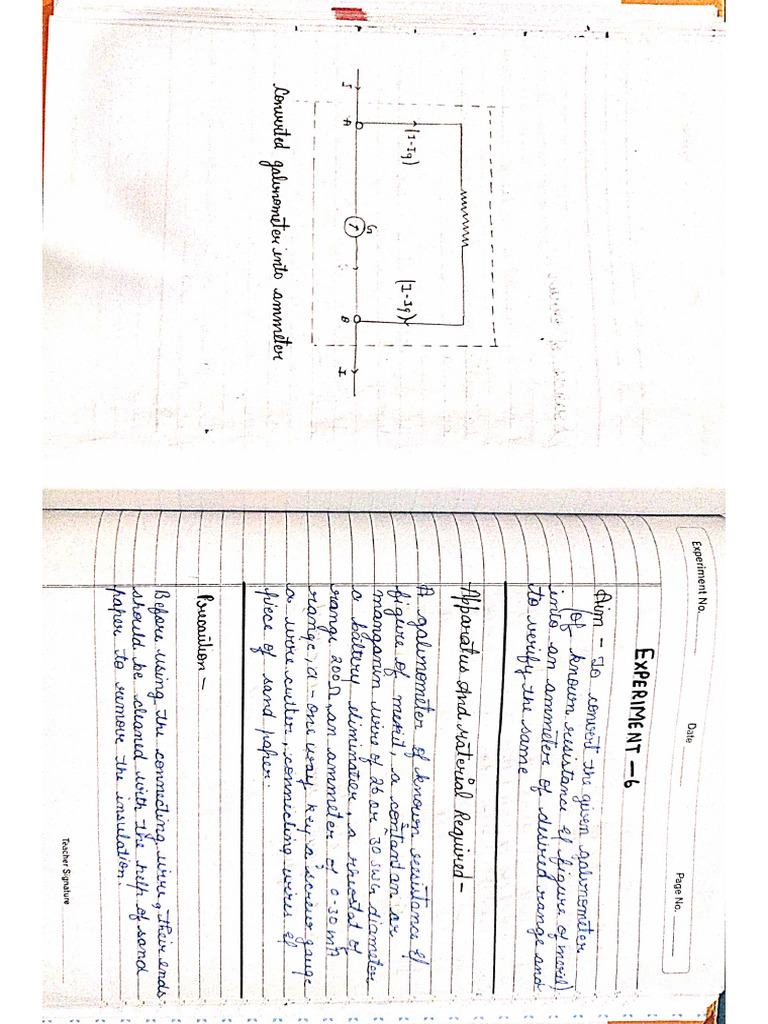 I
A
(I-Ig)
G
(I-Ig)
B
I
Converted galvnometer into ammeter
Experiment No.
Date
Page No.
EXPERIMENT - 6
Aim - To convert the given galvnometer
(of known resistance & figure of merit)
into an ammeter of desired range and
to verify the same
Apparatus And Material Required -
A galvnometer of known resistance &
figure of merit, a constantan or
manganin wire of 26 or 30 swg diameter
a battery eliminator, a rheostat of
range 200Ω, an ammeter of 0-30 mA
range, a - one way key, a screw gauge
a wire cutter, connecting wires &
piece of sand paper.
Precaution -
Before using the connecting wire, their ends
should be cleaned with the help of sand
paper to remove the insulation.
Teacher Signature